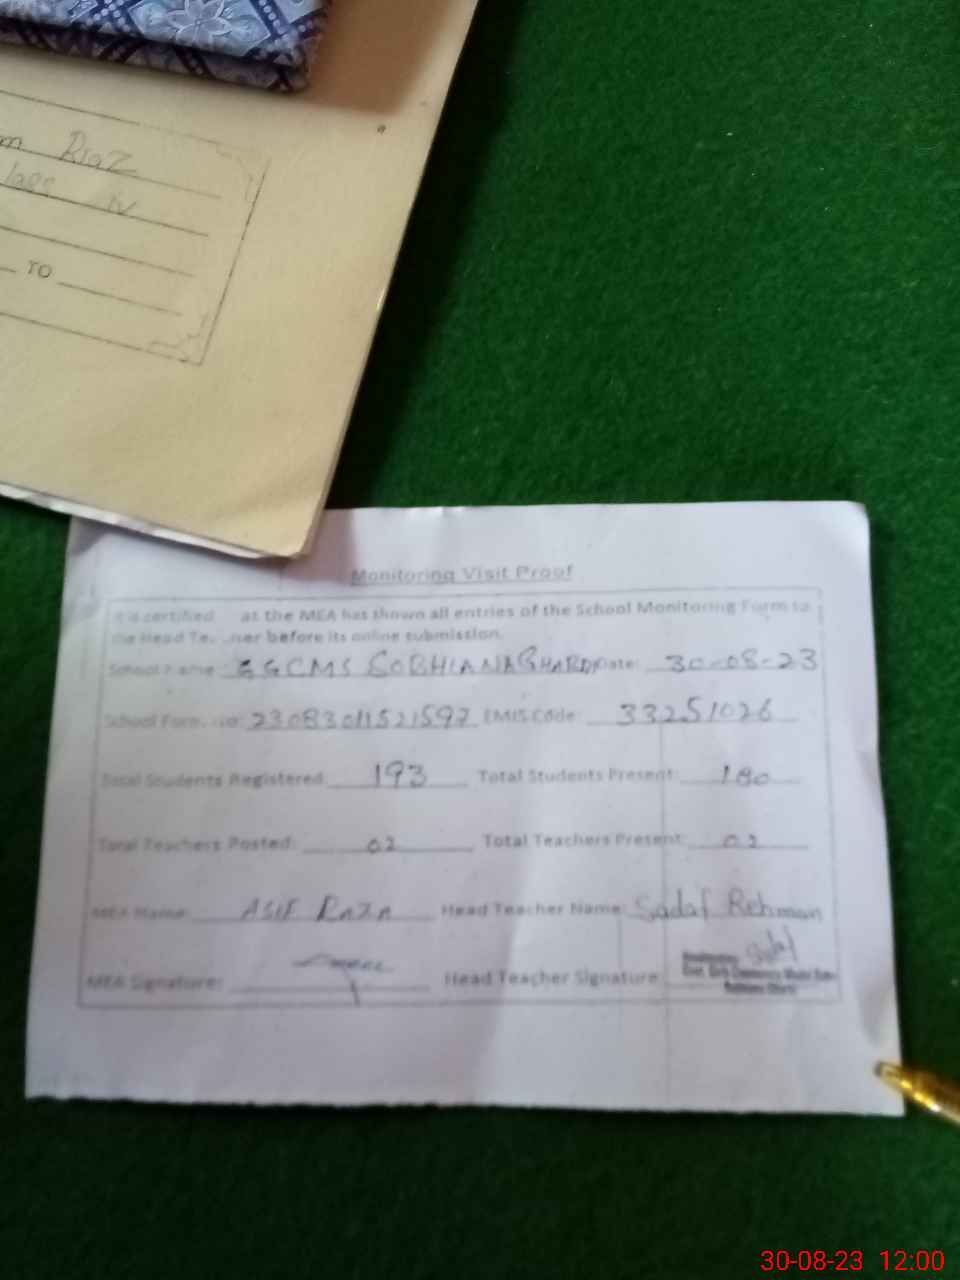 Riaz
TO
Monitoring Visit Proof
It is certified at the MEA has shown all entries of the School Monitoring Form to
the Head Te. .ner before its online submission.
School Name: GGCMS SOBHIANA BHARDI Date: 30-08-23
School Form No: 23083011521597 EMIS Code: 33251026
Total Students Registered: 193 Total Students Present: 180
Total Teachers Posted: 02 Total Teachers Present: 02
MEA Name: ASIF RAZA Head Teacher Name: Sadaf Rehman
MEA Signature: Head Teacher Signature: Sadaf
Govt. Girls Community Model
30-08-23 12:00